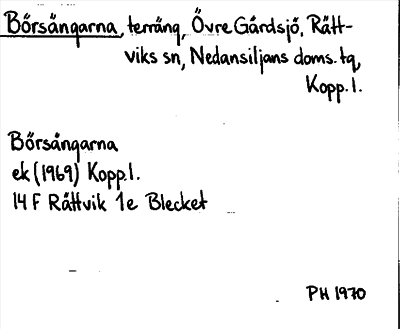 Börsängarna, terräng, Övre Gärdsjö, Rätt-
viks sn, Nedansiljans doms. tg,
Kopp. l.
Börsängarna
ek (1969) Kopp l.
14 F Rättvik 1e Blecket
PH 1970